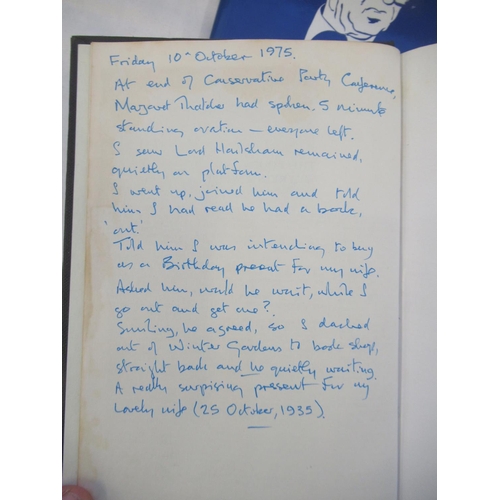 Friday 10^ October 1975.
At end of Conservative Party Conference,
Margaret Thatcher had spoken. 5 minute
standing ovation – everyone left.
I saw Lord Hailsham remained,
quietly on platform.
I went up, joined him and told
him I had read he had a book,
'out'.
Told him I was intending to buy
as a Birthday present for my wife.
Asked him, would he wait, while I
go out and get one?
Smiling, he agreed, so I dashed
out of Winter Gardens to book shop,
straight back and he quietly waiting.
A really surprising present for my
lovely wife (25 October, 1935).